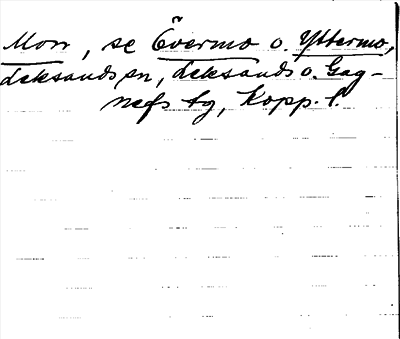 Morr, se Övermo o. Yttermo,
Leksands sn, Leksands o. Gag-
nefs tg, Kopp. l.